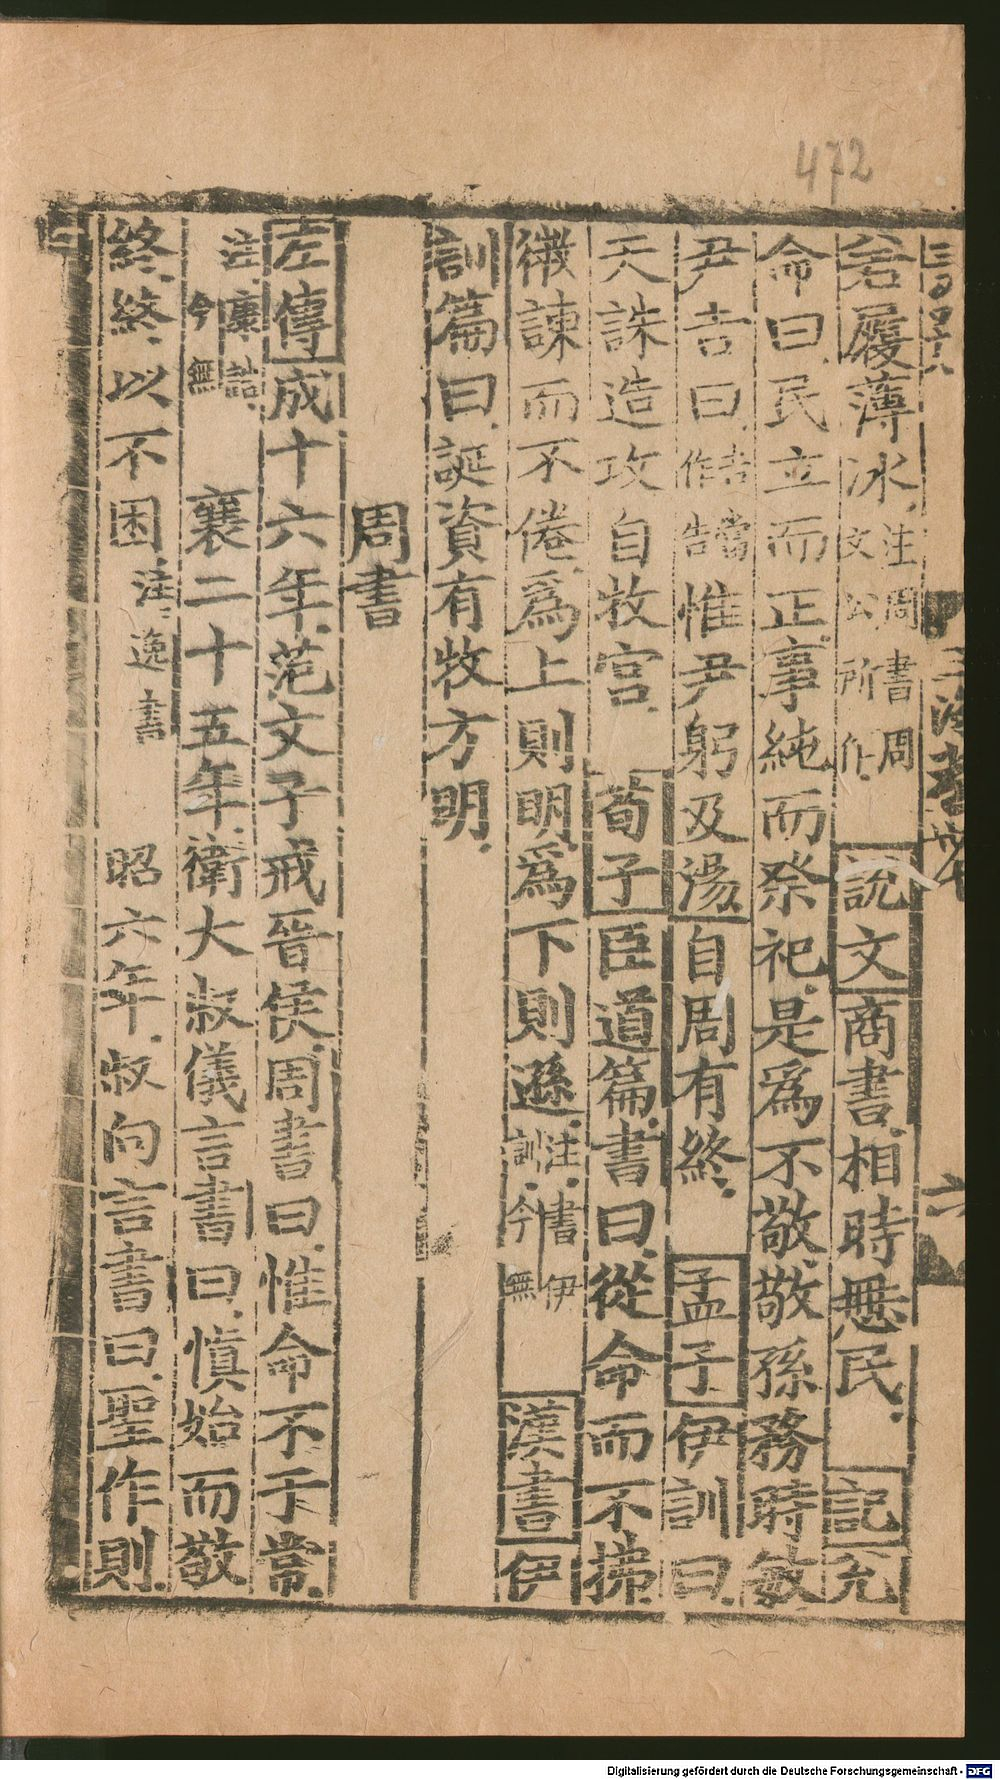 472
若履薄冰注周書周文公所作說文商書相時愚民記允
命曰民立而正事純而祭祀是爲不敬敬孫務時敏
尹吉曰吉當作告惟尹躬及湯自周有終孟子伊訓曰
天誅造攻自牧宮荀子臣道篇書曰從命而不拂
微諫而不倦爲上則明爲下則遜注書伊訓今無漢書伊
訓篇曰誕資有牧方明
周書
左傳成十六年范文子戒晉侯周書曰惟命不于常
注康誥今無襄二十五年衛大叔儀言書曰愼始而敬
終終以不困注逸書昭六年叔向言書曰聖作則
Digitalisierung gefördert durch die Deutsche Forschungsgemeinschaft - DFG